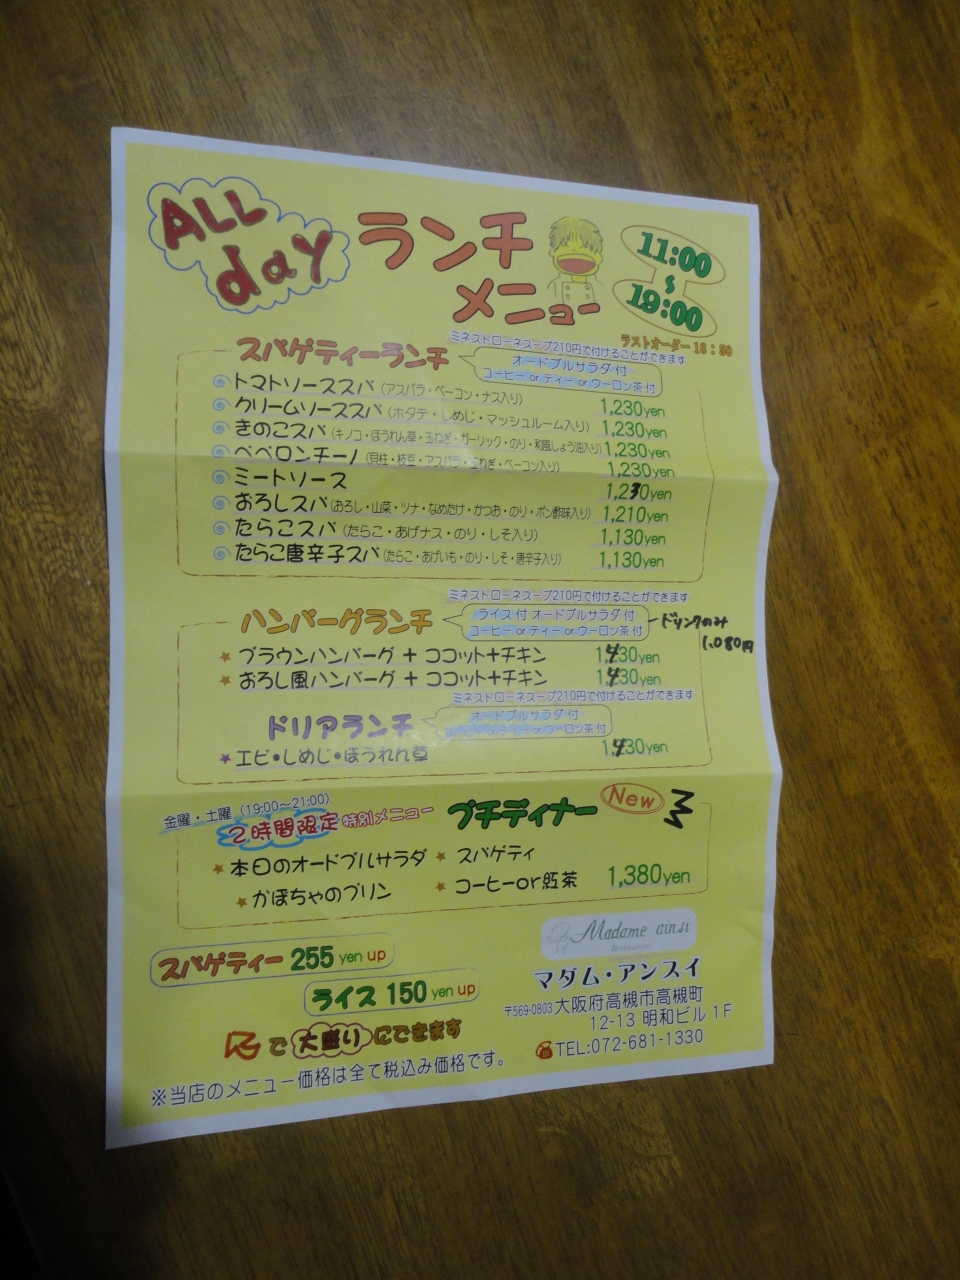 ALL day
ランチ
メニュー
11:00
〜
19:00
ラストオーダー 18:50
スパゲティーランチ
ミネストローネスープ210円で付けることができます
オードブルサラダ付
コーヒー or ティー or ウーロン茶 付
トマトソーススパ(アスパラ・ベーコン・ナス入り) 1,230yen
クリームソーススパ(ホタテ・しめじ・マッシュルーム入り) 1,230yen
きのこスパ(キノコ・ほうれん草・玉ねぎ・ガーリック・のり・和風しょう油入り) 1,230yen
ペペロンチーノ(貝柱・枝豆・アスパラ・玉ねぎ・ベーコン入り) 1,230yen
ミートソース 1,230yen
おろしスパ(おろし・山菜・ツナ・なめたけ・かつお・のり・ポン酢味入り) 1,210yen
たらこスパ(たらこ・あげナス・のり・しそ入り) 1,130yen
たらこ唐辛子スパ(たらこ・あげいも・のり・しそ・唐辛子入り) 1,130yen
ハンバーグランチ
ミネストローネスープ210円で付けることができます
ライス付 オードブルサラダ付
コーヒー or ティー or ウーロン茶 付
ドリンクのみ
1,080円
★ ブラウンハンバーグ + ココット+チキン 1,430yen
★ おろし風ハンバーグ + ココット+チキン 1,430yen
ドリアランチ
ミネストローネスープ210円で付けることができます
オードブルサラダ付
コーヒー or ティー or ウーロン茶 付
★ エビ・しめじ・ほうれん草 1,430yen
金曜・土曜(19:00〜21:00)
2時間限定 特別メニュー プチディナー New
★ 本日のオードブルサラダ ★ スパゲティ
★ かぼちゃのプリン ★ コーヒーor紅茶 1,380yen
スパゲティー 255 yen up
ライス 150 yen up
で 大盛り にできます
※当店のメニュー価格は全て税込み価格です。
Madame ainsi
Restaurant
マダム・アンスイ
〒569-0803 大阪府高槻市高槻町
12-13 明和ビル 1F
TEL:072-681-1330